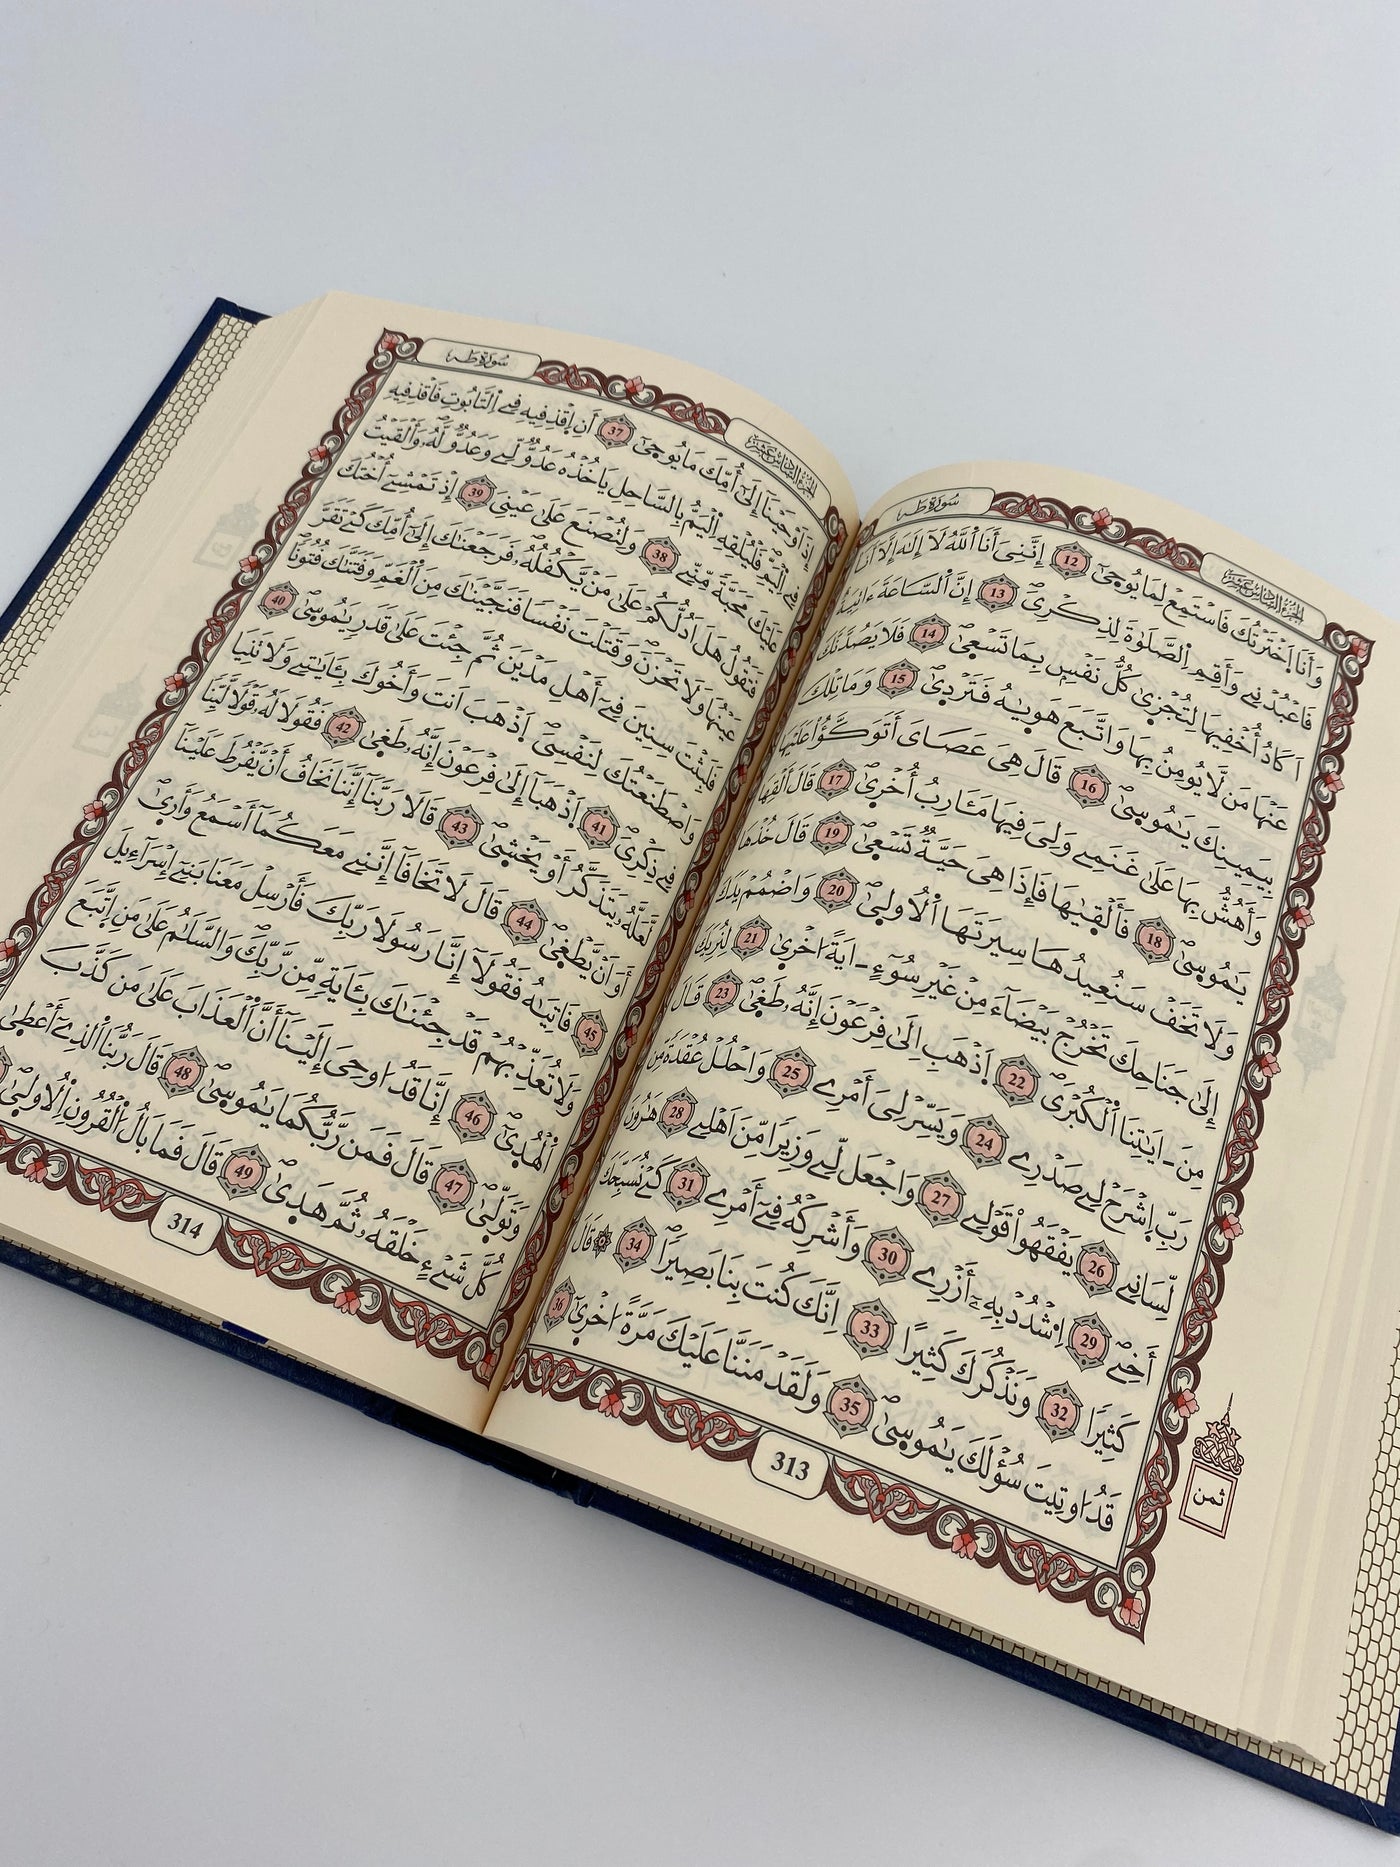 سُورَةُ طَهَ
الجُزْءُ السَّادِسَ عَشَرَ
وَأَنَا اَخْتَرْتُكَ فَاسْتَمِعْ لِمَا يُوحَىٰٓ 12 إِنَّنِىَ أَنَا اَللَّهُ لَا إِلَٰهَ إِلَّا أَنَا
فَاعْبُدْنِے وَأَقِمِ اِلصَّلَوٰةَ لِذِكْرِىَ 13 إِنَّ اَلسَّاعَةَ ءَاتِيَةٌ
اَكَادُ أُخْفِيهَا لِتُجْزَىٰ كُلُّ نَفْسٍۭ بِمَا تَسْعَىٰ 14 فَلَا يَصُدَّنَّكَ
عَنْهَا مَن لَّا يُومِنُ بِهَا وَاتَّبَعَ هَوَيٰهُ فَتَرْدَىٰ 15 وَمَا تِلْكَ
بِيَمِينِكَ يَٰمُوسَىٰ 16 قَالَ هِىَ عَصَاىَ أَتَوَكَّؤُاْ عَلَيْهَا
وَأَهُشُّ بِهَا عَلَىٰ غَنَمِے وَلِىَ فِيهَا مَـَٔارِبُ أُخْرَىٰ 17 قَالَ أَلْقِهَا
يَٰمُوسَىٰ 18 فَأَلْقَيٰهَا فَإِذَا هِىَ حَيَّةٌ تَسْعَىٰ 19 قَالَ خُذْهَا
وَلَا تَخَفْ سَنُعِيدُهَا سِيرَتَهَا اَلُاولَىٰ 20 وَاضْمُمْ يَدَكَ
إِلَىٰ جَنَاحِكَ تَخْرُجْ بَيْضَآءَ مِنْ غَيْرِ سُوٓءٍ ـ ايَةً اخْرَىٰ 21 لِنُرِيَكَ
مِنَ ـ ايَٰتِنَا اَلْكُبْرَى 22 اَذْهَبِ اِلَىٰ فِرْعَوْنَ إِنَّهُۥ طَغَىٰ 23 قَالَ
رَبِّ اِشْرَحْ لِے صَدْرِے 24 وَيَسِّرْ لِىَ أَمْرِے 25 وَاحْلُلْ عُقْدَةً مِّن
لِّسَانِے 26 يَفْقَهُواْ قَوْلِے 27 وَاجْعَل لِّے وَزِيرًا مِّنَ اَهْلِے 28 هَٰرُونَ
أَخِے 29 اِشْدُدْ بِهِۦٓ أَزْرِے 30 وَأَشْرِكْهُ فِےٓ أَمْرِے 31 كَےْ نُسَبِّحَكَ
كَثِيرًا 32 وَنَذْكُرَكَ كَثِيرًا 33 اِنَّكَ كُنتَ بِنَا بَصِيرًا 34 ۞ قَالَ
قَدُ اوتِيتَ سُؤْلَكَ يَٰمُوسَىٰ 35 وَلَقَدْ مَنَنَّا عَلَيْكَ مَرَّةً اخْرَىٰٓ 36
ثمن
313
سُورَةُ طَهَ
الجُزْءُ السَّادِسَ عَشَرَ
إِذَ اَوْحَيْنَآ إِلَىٰٓ أُمِّكَ مَا يُوحَىٰٓ 37 أَنِ اِقْذِفِيهِ فِے اِلتَّابُوتِ فَاقْذِفِيهِ
فِے اِلْيَمِّ فَلْيُلْقِهِ اِلْيَمُّ بِالسَّاحِلِ يَاخُذْهُ عَدُوٌّ لِّے وَعَدُوٌّ لَّهُۥ وَأَلْقَيْتُ
عَلَيْكَ مَحَبَّةً مِّنِّے 38 وَلِتُصْنَعَ عَلَىٰ عَيْنِىَ 39 إِذْ تَمْشِےٓ أُخْتُكَ
فَتَقُولُ هَلَ اَدُلُّكُمْ عَلَىٰ مَنْ يَّكْفُلُهُۥ فَرَجَعْنَٰكَ إِلَىٰٓ أُمِّكَ كَےْ تَقَرَّ
عَيْنُهَا وَلَا تَحْزَنَ وَقَتَلْتَ نَفْسًا فَنَجَّيْنَٰكَ مِنَ اَلْغَمِّ وَفَتَنَّٰكَ فُتُونًا
فَلَبِثْتَ سِنِينَ فِےٓ أَهْلِ مَدْيَنَ ثُمَّ جِئْتَ عَلَىٰ قَدَرٍ يَٰمُوسَىٰ 40
وَاصْطَنَعْتُكَ لِنَفْسِىَ اَذْهَبَ اَنتَ وَأَخُوكَ بِـَٔايَٰتِے وَلَا تَنِيَا
فِے ذِكْرِىَ 41 اَذْهَبَآ إِلَىٰ فِرْعَوْنَ إِنَّهُۥ طَغَىٰ 42 فَقُولَا لَهُۥ قَوْلًا لَّيِّنًا
لَّعَلَّهُۥ يَتَذَكَّرُ أَوْ يَخْشَىٰ 43 قَالَا رَبَّنَآ إِنَّنَا نَخَافُ أَنْ يَّفْرُطَ عَلَيْنَآ
أَوَ اَنْ يَّطْغَىٰ 44 قَالَ لَا تَخَافَآ إِنَّنِے مَعَكُمَآ أَسْمَعُ وَأَرَىٰ
45 فَاتِيَٰهُ فَقُولَآ إِنَّا رَسُولَا رَبِّكَ فَأَرْسِلْ مَعَنَا بَنِےٓ إِسْرَآءِيلَ
وَلَا تُعَذِّبْهُمْ قَدْ جِئْنَٰكَ بِـَٔايَةٍ مِّن رَّبِّكَ وَالسَّلَٰمُ عَلَىٰ مَنِ اِتَّبَعَ
اَلْهُدَىٰٓ 46 إِنَّا قَدُ اوحِىَ إِلَيْنَآ أَنَّ اَلْعَذَابَ عَلَىٰ مَن كَذَّبَ
وَتَوَلَّىٰ 47 قَالَ فَمَن رَّبُّكُمَا يَٰمُوسَىٰ 48 قَالَ رَبُّنَا اَلذِےٓ أَعْطَىٰ
كُلَّ شَےْءٍ خَلْقَهُۥ ثُمَّ هَدَىٰ 49 قَالَ فَمَا بَالُ اُلْقُرُونِ اِلُاولَىٰ
314